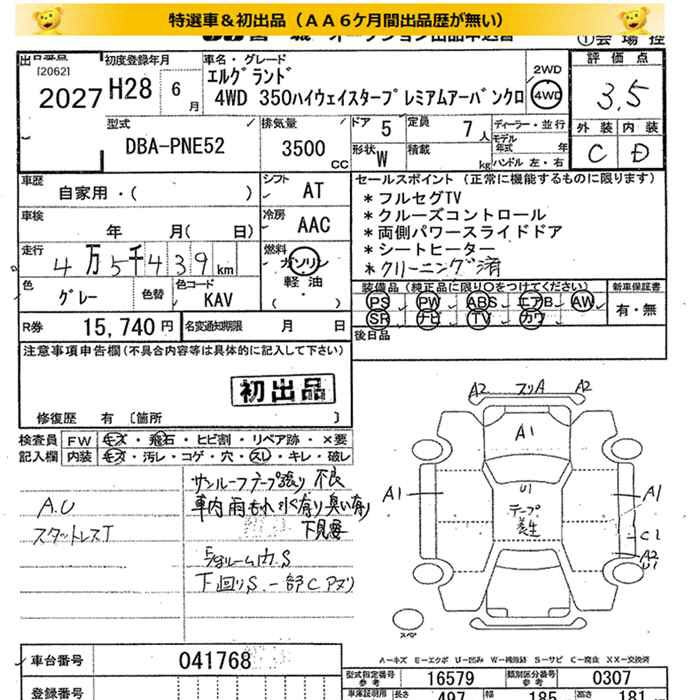 特選車&初出品（ＡＡ６ケ月間出品歴が無い）
オークション出品申込書
①会場控
[2062]
2027
初度登録年月
H28 6月
車名・グレード
エルグランド
4WD 350ハイウェイスタープレミアムアーバンクロ
2WD
4WD
評価点
3.5
外装 内装
C D
型式
DBA-PNE52
排気量
3500 CC
ドア 5
定員 7人
形状 W
積載 kg
ディーラー・並行
モデル年式 年
ハンドル 左・右
車歴
自家用・( )
シフト AT
車検
年 月( 日)
冷房 AAC
走行
4万5千439km
燃料
ガソリン
軽油
( )
色 グレー
色替
色コード KAV
R券 15,740円
名変通知期限 月 日
セールスポイント（正常に機能するものに限ります）
*フルセグTV
*クルーズコントロール
*両側パワースライドドア
*シートヒーター
*クリーニング済
装備品（純正品に限り○をつけてください）
PS PW ABS エアB AW
SR ナビ TV カワ
新車保証書
有・無
後日品
注意事項申告欄(不具合内容等は具体的に記入して下さい)
初出品
修復歴 有〔箇所 〕
検査員記入欄
FW キズ・飛石・ヒビ割・リペア跡・×要
内装 キズ・汚レ・コゲ・穴・スレ・キレ・破レ
サンルーフテープ張り 不良
車内雨もれ 水有り臭い有り
下見要
A.U
スタットレスT
下回りS 一部C アメリ
A2 スリA A2
A1
A1
U1
テープ養生
A1
C1
A2
U1
スペア
車台番号 041768
A－キズ E－エクボ U－凹み W－補修跡 S－サビ C－腐食 XX－交換済
登録番号
型式指定番号 参考 16579
類別区分番号 参考 0307
車庫証明用 長さ 497 幅 185 高さ 181